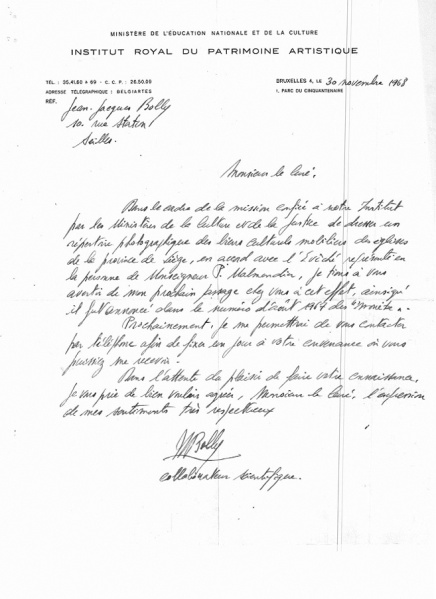 MINISTÈRE DE L'ÉDUCATION NATIONALE ET DE LA CULTURE
INSTITUT ROYAL DU PATRIMOINE ARTISTIQUE
TÉL. : 35.41.60 à 69 - C. C. P. : 26.50.09
ADRESSE TÉLÉGRAPHIQUE : BELGIARTES
RÉF.
BRUXELLES 4, LE 30 novembre 1968
1, PARC DU CINQUANTENAIRE
Jean-Jacques Bolly
10, rue
Seilles
Monsieur le Curé,
Dans le cadre de la mission confiée à notre Institut
par les Ministères de la Culture et de la Justice de dresser un
répertoire photographique des biens culturels mobiliers des églises
de la province de Liège, en accord avec l'Evêché représenté en
la personne de Monseigneur P. , je tiens à vous
avertir de mon prochain passage chez vous à cet effet, ainsi qu'
il fut annoncé dans le numéro d'août 1967 des
Prochainement, je me permettrai de vous contacter
par téléphone afin de fixer un jour à votre convenance où vous
puissiez me recevoir.
Dans l'attente du plaisir de faire votre connaissance,
je vous prie de bien vouloir agréer, Monsieur le Curé, l'expression
de mes sentiments très respectueux
JJBolly
collaborateur scientifique.